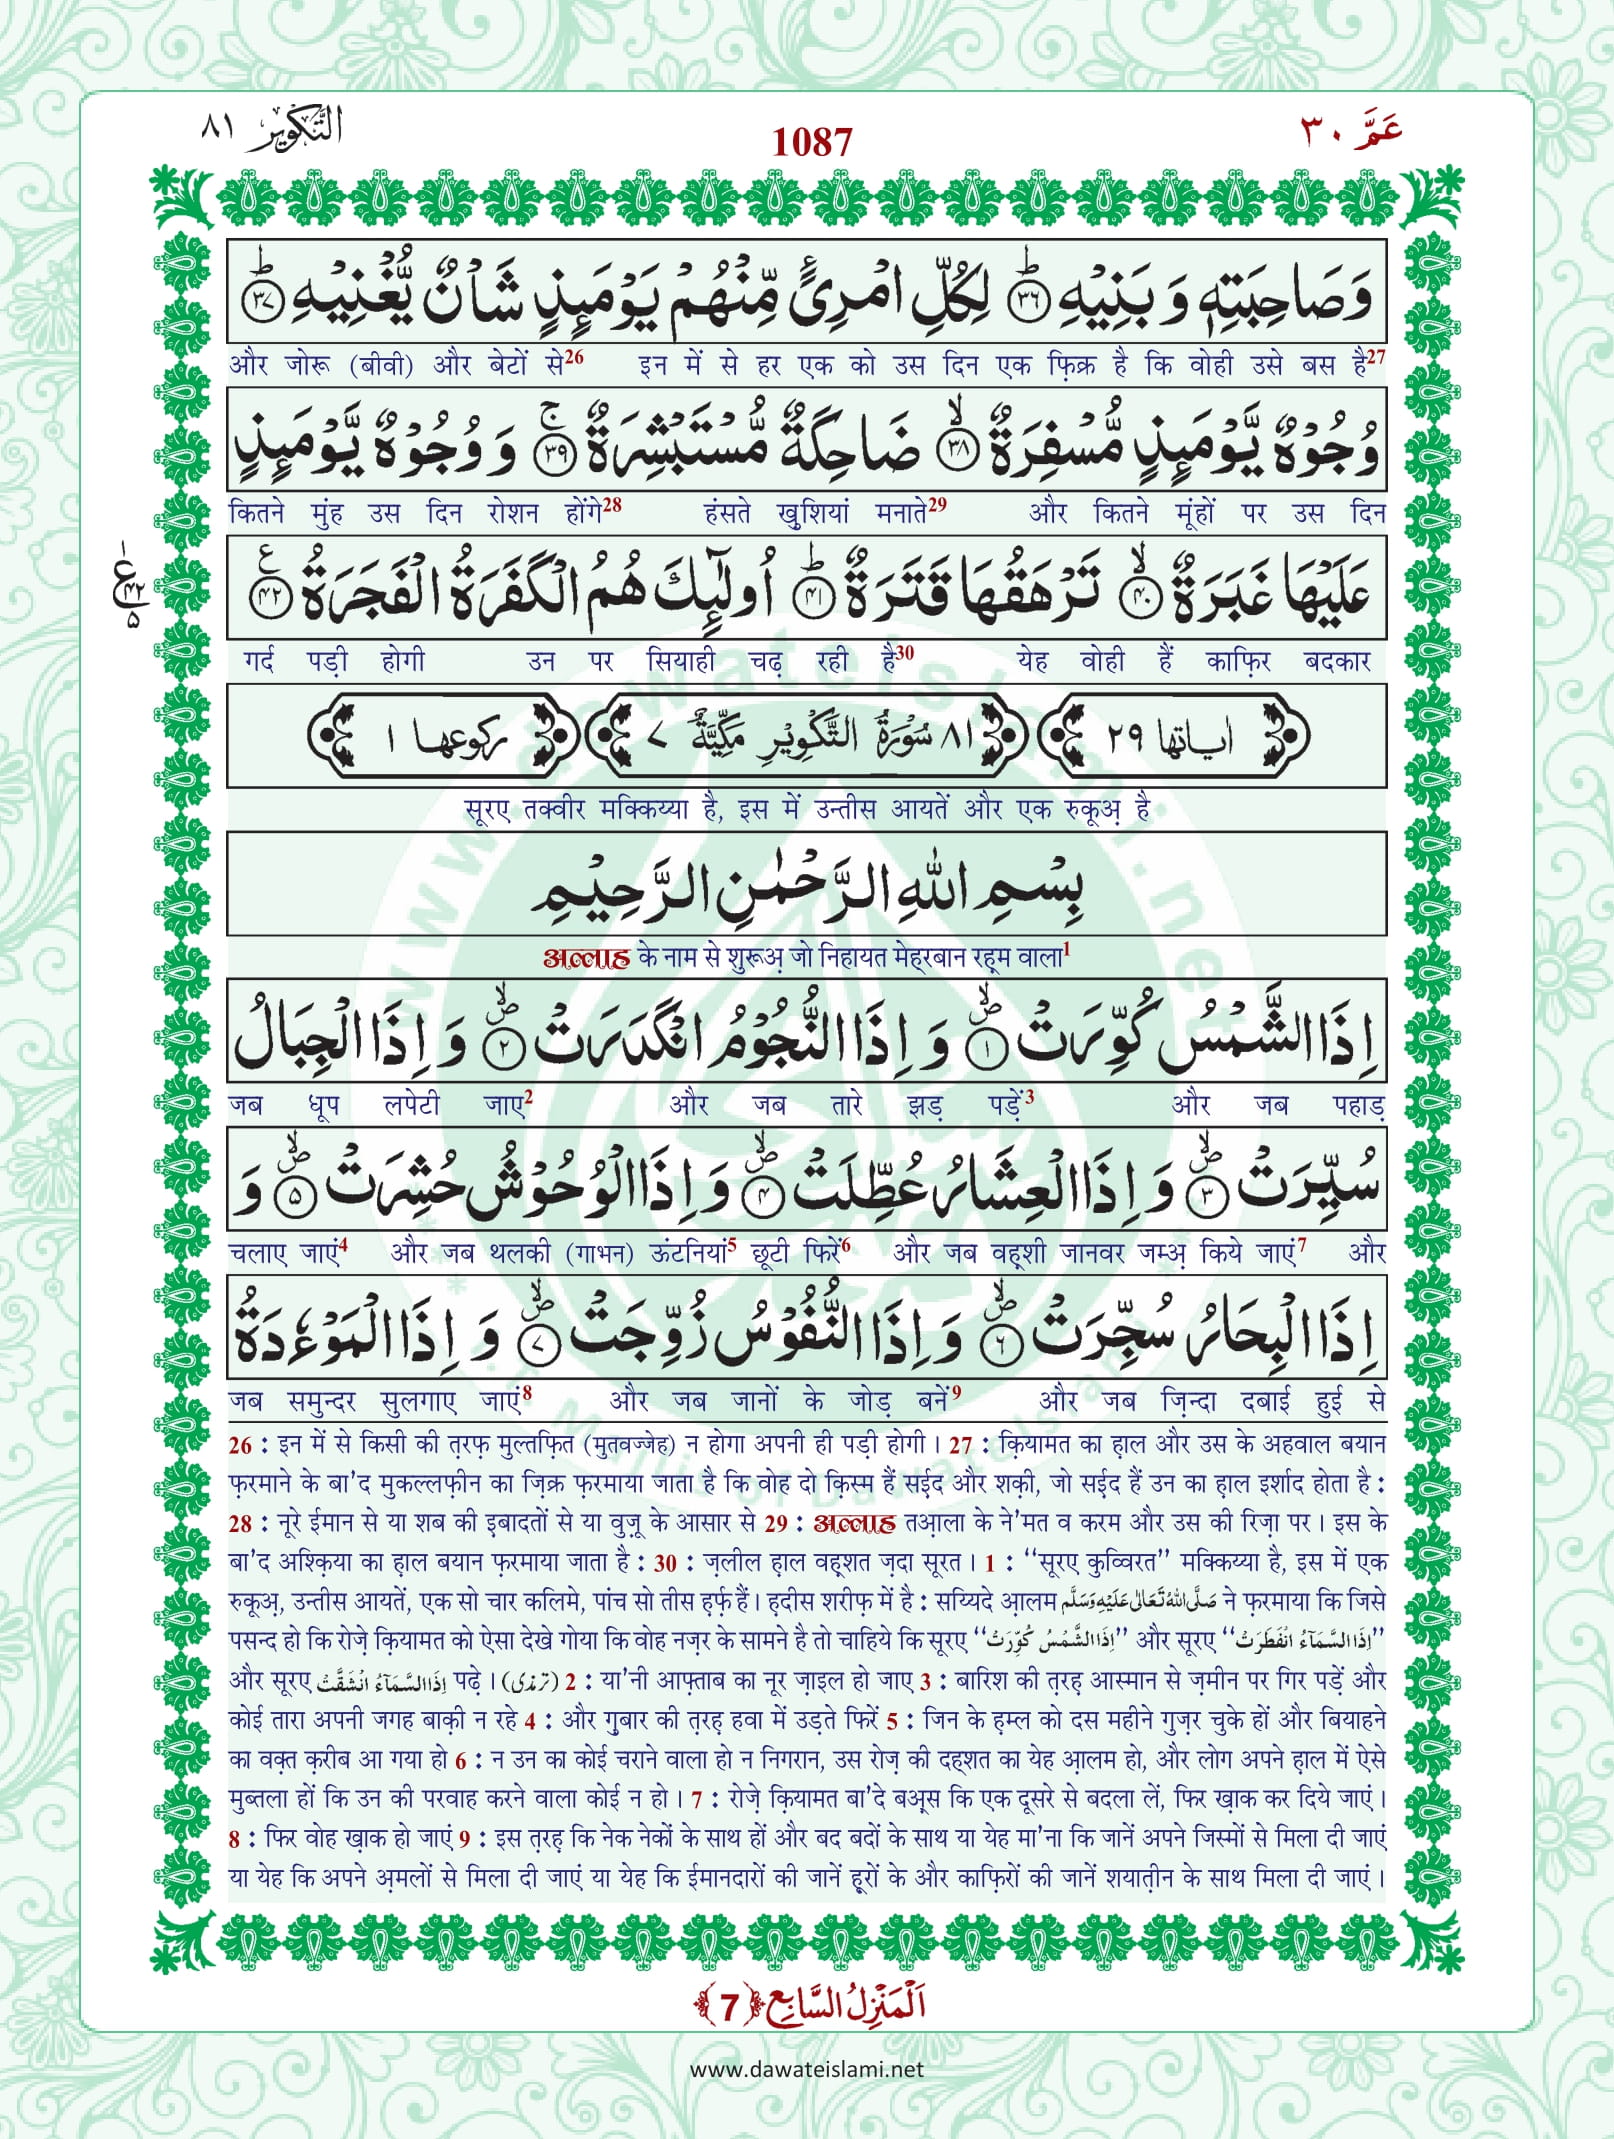 عَمَّ ٣٠
1087
التَّكْوِيْر ٨١
وَصَاحِبَتِهٖ وَ بَنِيْهِ ؕ﴿٣٦﴾ لِكُلِّ امْرِئٍ مِّنْهُمْ يَوْمَىِٕذٍ شَاْنٌ يُّغْنِيْهِ ؕ﴿٣٧﴾
और जोरू (बीवी) और बेटों से26 इन में से हर एक को उस दिन एक फ़िक्र है कि वोही उसे बस है27
وُجُوْهٌ يَّوْمَىِٕذٍ مُّسْفِرَةٌ ۙ﴿٣٨﴾ ضَاحِكَةٌ مُّسْتَبْشِرَةٌ ۚ﴿٣٩﴾ وَ وُجُوْهٌ يَّوْمَىِٕذٍ
कितने मुंह उस दिन रोशन होंगे28 हंसते खुशियां मनाते29 और कितने मूंहों पर उस दिन
عَلَيْهَا غَبَرَةٌ ۙ﴿٤٠﴾ تَرْهَقُهَا قَتَرَةٌ ؕ﴿٤١﴾ اُولٰٓىِٕكَ هُمُ الْكَفَرَةُ الْفَجَرَةُ ﴿٤٢﴾
ع ٤٢ ٥
गर्द पड़ी होगी उन पर सियाही चढ़ रही है30 येह वोही हैं काफ़िर बदकार
اٰیاتها ٢٩ ٨١ سُوْرَةُ التَّكْوِيْرِ مَكِّيَّةٌ ٧ ركوعها ١
सूरए तक्वीर मक्किय्या है, इस में उन्तीस आयतें और एक रुकूअ़ है
بِسْمِ اللّٰهِ الرَّحْمٰنِ الرَّحِيْمِ
अल्लाह के नाम से शुरूअ़ जो निहायत मेह्‌रबान रह्‌म वाला1
اِذَا الشَّمْسُ كُوِّرَتْ ﴿١﴾ وَ اِذَا النُّجُوْمُ انْكَدَرَتْ ﴿٢﴾ وَ اِذَا الْجِبَالُ
जब धूप लपेटी जाए2 और जब तारे झड़ पड़ें3 और जब पहाड़
سُيِّرَتْ ﴿٣﴾ وَ اِذَا الْعِشَارُ عُطِّلَتْ ﴿٤﴾ وَ اِذَا الْوُحُوْشُ حُشِرَتْ ﴿٥﴾ وَ
चलाए जाएं4 और जब थलकी (गाभन) ऊंटनियां5 छूटी फिरें6 और जब वह्‌शी जानवर जम्अ़ किये जाएं7 और
اِذَا الْبِحَارُ سُجِّرَتْ ﴿٦﴾ وَ اِذَا النُّفُوْسُ زُوِّجَتْ ﴿٧﴾ وَ اِذَا الْمَوْءٗدَةُ
जब समुन्दर सुलगाए जाएं8 और जब जानों के जोड़ बनें9 और जब ज़िन्दा दबाई हुई से
26 : इन में से किसी की त़रफ़ मुल्तफ़ित (मुतवज्जेह) न होगा अपनी ही पड़ी होगी । 27 : क़ियामत का ह़ाल और उस के अहवाल बयान
फ़रमाने के बा'द मुकल्लफ़ीन का ज़िक्र फ़रमाया जाता है कि वोह दो क़िस्म हैं सई़द और शक़ी, जो सई़द हैं उन का ह़ाल इर्शाद होता है :
28 : नूरे ईमान से या शब की इ़बादतों से या वुज़ू के आसार से 29 : अल्लाह तआ़ला के ने'मत व करम और उस की रिज़ा पर । इस के
बा'द अश्क़िया का ह़ाल बयान फ़रमाया जाता है : 30 : ज़लील ह़ाल वह़्शत ज़दा सूरत । 1 : “सूरए कुव्विरत” मक्किय्या है, इस में एक
रुकूअ़, उन्तीस आयतें, एक सो चार कलिमे, पांच सो तीस ह़र्फ़ हैं । ह़दीस शरीफ़ में है : सय्यिदे आ़लम صَلَّى اللهُ تَعَالٰى عَلَيْهِ وَسَلَّم ने फ़रमाया कि जिसे
पसन्द हो कि रोज़े क़ियामत को ऐसा देखे गोया कि वोह नज़र के सामने है तो चाहिये कि सूरए “اِذَا الشَّمْسُ كُوِّرَتْ” और सूरए “اِذَا السَّمَآءُ انْفَطَرَتْ”
और सूरए اِذَا السَّمَآءُ انْشَقَّتْ पढ़े । (ترمذی) 2 : या'नी आफ़्ताब का नूर ज़ाइल हो जाए 3 : बारिश की त़रह़ आस्मान से ज़मीन पर गिर पड़ें और
कोई तारा अपनी जगह बाक़ी न रहे 4 : और गुबार की त़रह़ हवा में उड़ते फिरें 5 : जिन के ह़म्ल को दस महीने गुज़र चुके हों और बियाहने
का वक़्त क़रीब आ गया हो 6 : न उन का कोई चराने वाला हो न निगरान, उस रोज़ की दह्‌शत का येह आ़लम हो, और लोग अपने ह़ाल में ऐसे
मुब्तला हों कि उन की परवाह करने वाला कोई न हो । 7 : रोज़े क़ियामत बा'दे बअ़्स कि एक दूसरे से बदला लें, फिर ख़ाक कर दिये जाएं ।
8 : फिर वोह ख़ाक हो जाएं 9 : इस त़रह़ कि नेक नेकों के साथ हों और बद बदों के साथ या येह मा'ना कि जानें अपने जिस्मों से मिला दी जाएं
या येह कि अपने अ़मलों से मिला दी जाएं या येह कि ईमानदारों की जानें हूरों के और काफ़िरों की जानें शयात़ीन के साथ मिला दी जाएं ।
اَلْمَنْزِلُ السَّابِع ﴿7﴾
www.dawateislami.net